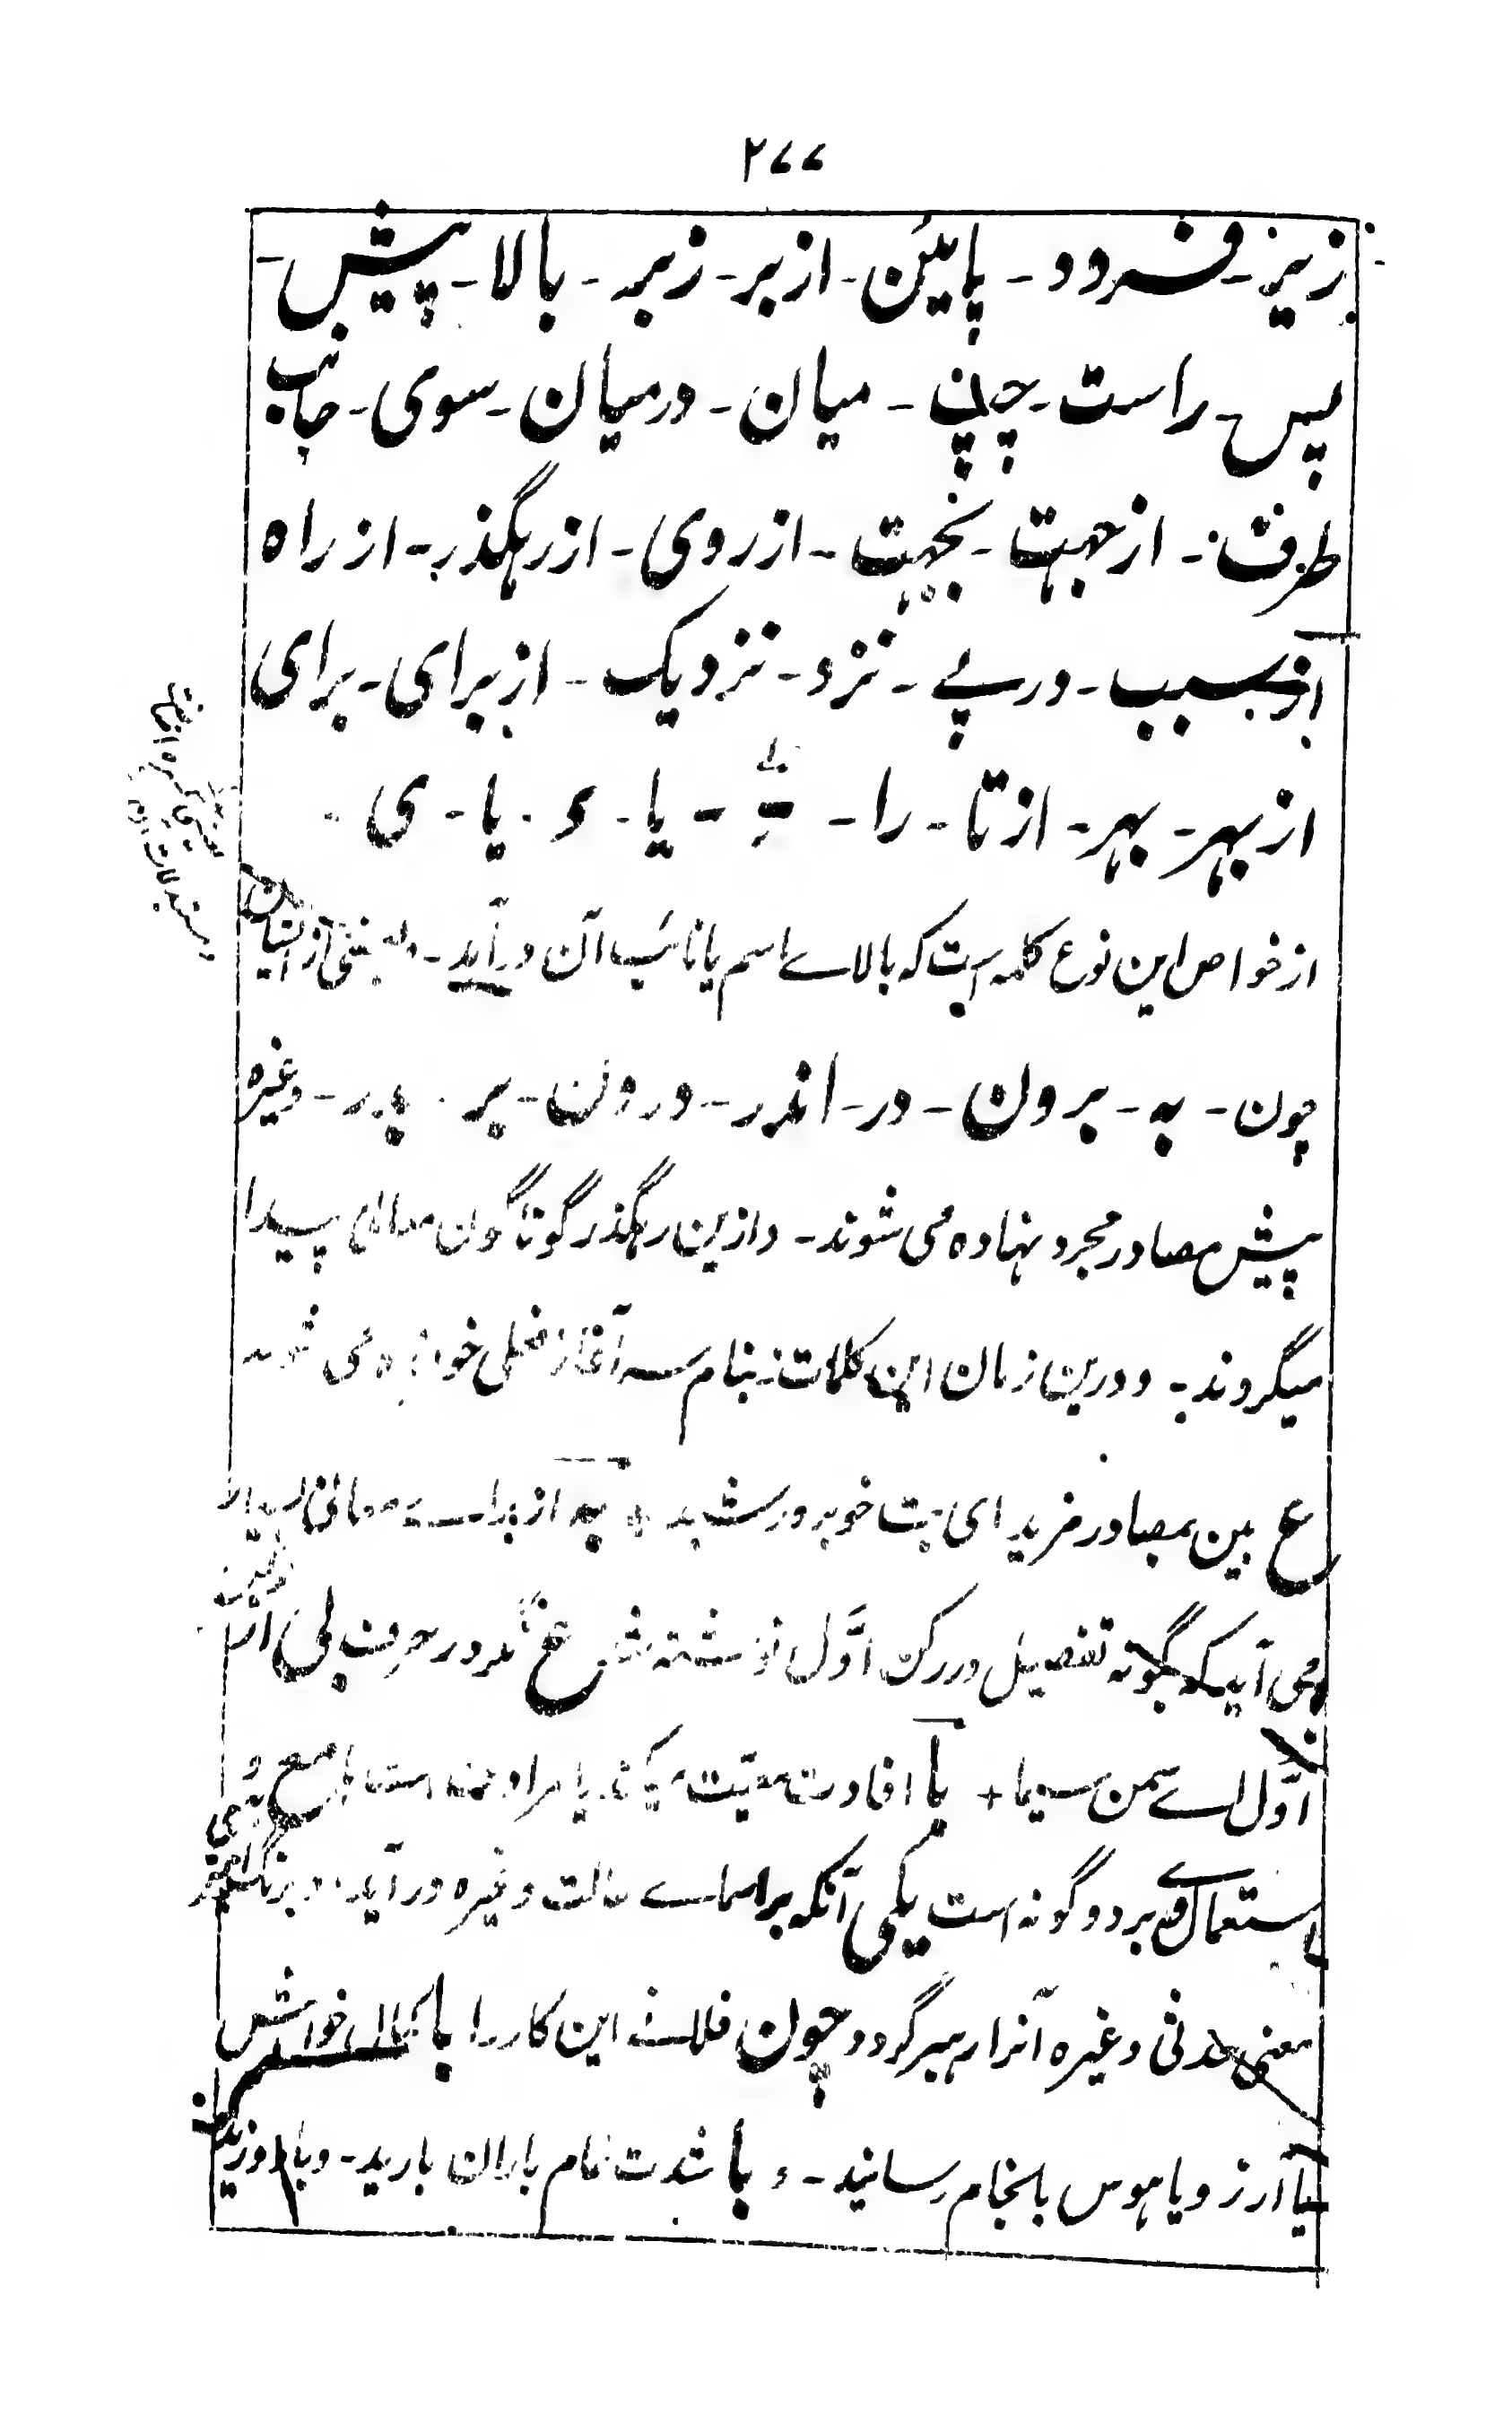 ۲۷۷
زیز - فرود - پایئن - از بر - زبر - بالا - پیش -
پس - راست - چپ - میان - درمیان - سوی - جانب
طرف - از جهت - بجهت - از روی - از رهگذر - از راه
از سبب - در پے - نزد - نزدیک - از برای - برای
از بهر - بهر - از تا - را - یا - ء - یا - ی -
از خواص این نوع کلمه است که بالاے اسم یا نائب آن درآید - و بعضی از ایشان
چون - به - برون - در - اندر - درون - بر - پدر - وغیره
پیش مصادر مجرد نهاده می شوند - و ازین رهگذر گوناگون معانی پیدا
میگردند - و درین زمان این کلمات بنام سر آغاز فعلی خوانده می شوند
ع بین بمصادر مزید ای بت خوبرو رشید + به از براے معانی بسیار
می آید که بگونه تفصیل در رکن اوّل نوشته شد ع نگر در حرف بی از
اوّل اے سمن سیما + با افادت معیّت میکند یا مرادف است با مع و
استعمال وے بر دو گونه است یکی آنکه بر اسماے حالت وغیره درآید و برنگ
معنی حدثی وغیره آنرا رهبر گردد چون فلانے این کار را با کمال خواهش
یا آرزو یا هوس بانجام رسانید - و با شدت تمام باران بارید - و باد وزید